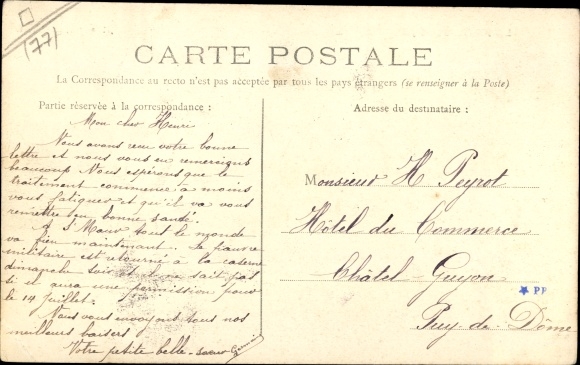 (77)
CARTE POSTALE
La Correspondance au recto n'est pas acceptée par tous les pays étrangers (se renseigner à la Poste)
Partie réservée à la correspondance :
Adresse du destinataire :
Mon cher Henri
Nous avons reçu votre bonne
lettre et nous vous en remercions
beaucoup Nous espérons que le
traitement commence à moins
vous fatiguer et qu'il va vous
remettre en bonne santé.
A St Maur tout le monde
va bien maintenant. Le pauvre
militaire est retourné à la caserne
dimanche soir et on ne sait pas
si il aura une permission pour
le 14 juillet.
Nous vous envoyons tous nos
meilleurs baisers
Votre petite belle-sœur
Monsieur H Peyrot
Hôtel du Commerce
Châtel-Guyon
Puy-de-Dôme
PF